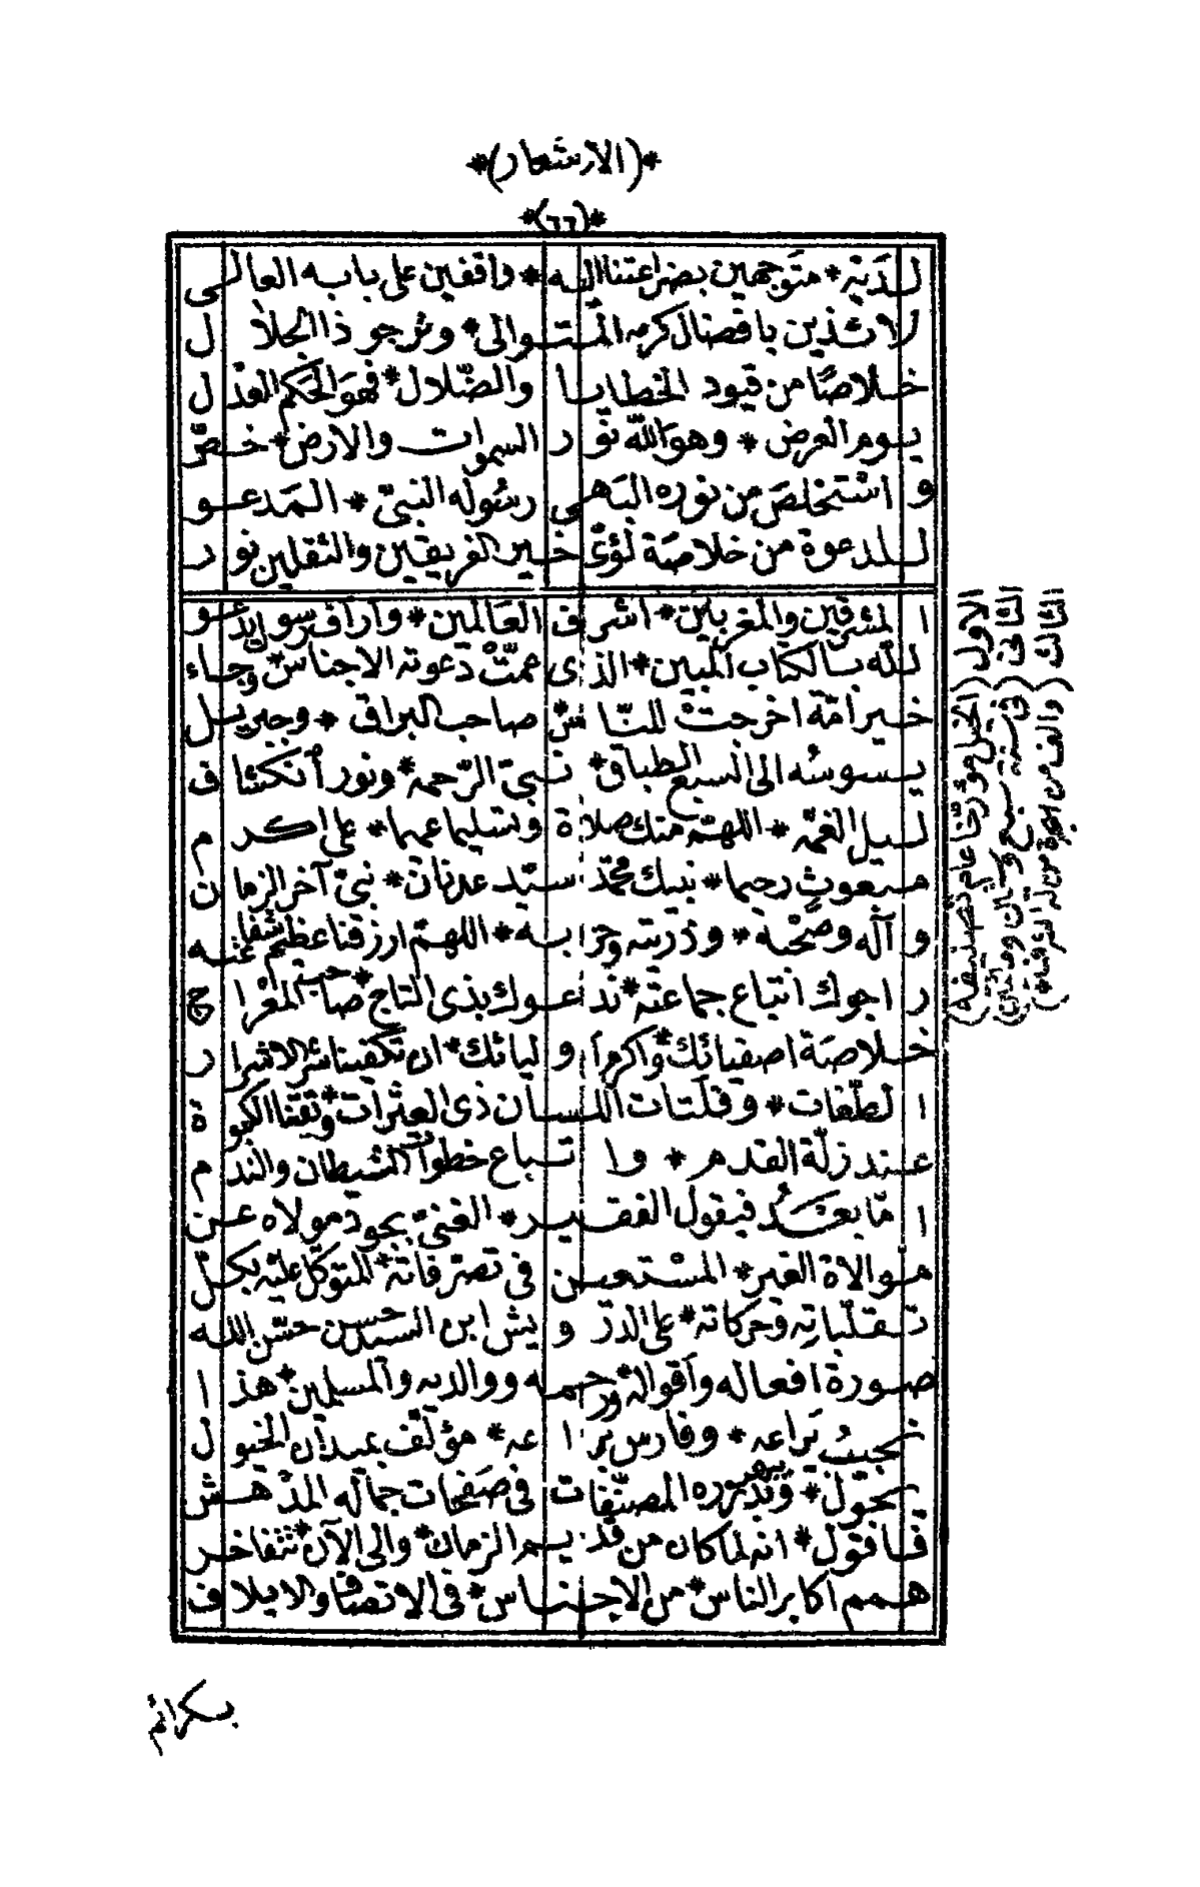 *(الاشعار)*
*(٦٦)*
لديه * متوجهين بضراعتنا اليه * واقفين على بابه العالى
لائذين بافضال كرمه المتوالى * ونرجو ذا الجلال
خلاصًا من قيود الخطايا والضّلال * فهو الحكم العدل
يوم العرض * وهو الله نور السموات والارض * خصّ
واسْتخلصَ من نوره البهى رسُوله النبىّ * المدعو
للدعوة من خلاصَة لؤىّ خير الفريقين والثقلين نور
المشرقين والمغربين * اشرف العَالمين * وارأف رسول يدعو
لله بالكتاب المبين * الذى عمّتْ دَعوته الاجناس * وجاء
خير امّة اخرجتْ للنّاس * صاحب البراق * وجبريل
يسوسُه الى السبع الطباق * نبىّ الرّحمه * ونور انكشاف
ليل الغمّه * اللهمّ منك صلاة وتسليما عميما * على اكرم
مبعوث رحيما * نبيك محمّد سيّد عدنان * نبىّ آخر الزمان
وآله وصَحْبه * وذريته وحزابه * اللهمّ ارزقنا عظيم شفاعته
راجوك اتباع جماعته * ندعوك بذى التاج * صاحب المعْراج
خلاصَة اصفيائك * واكرم اوليائك * ان تكفينا شرّ الاشرار
الطغات * وفلَتات اللسان ذى العثرات * وتقنا الكبوة
عند زلّة القدم * واتباع خطوات الشيطان والندم
امّا بعَدُ فيقول الفقير * الغنىّ بجود مولاه عن
موالاة الغير * المسْتعين فى تصرّفاته * المتوكّل عليْه بكلّ
تقلّباتِه وحركاته * على الدرويش ابن السيد حسن حسّن الله
صورة افعاله واقواله * ورحمه ووالديه والمسلمين * هذا
نجيبُ يراعه * وفارس براعه * مؤلّف بميدان الخيول
يحوّل * وفى صَفحات جماله المدْهش
فاقول * انه لما كان من قديم الزمان * والى الآن * تتفاخر
همم اكابر الناس * من الاجناس * فى الاتصاف والايلاف
بكرائم
الاول (الخيل مؤرخًا عام تصنيفه)
الثانى (فى سنة سبع وثمانين ومائتين)
الثالث (والف من الهجرة